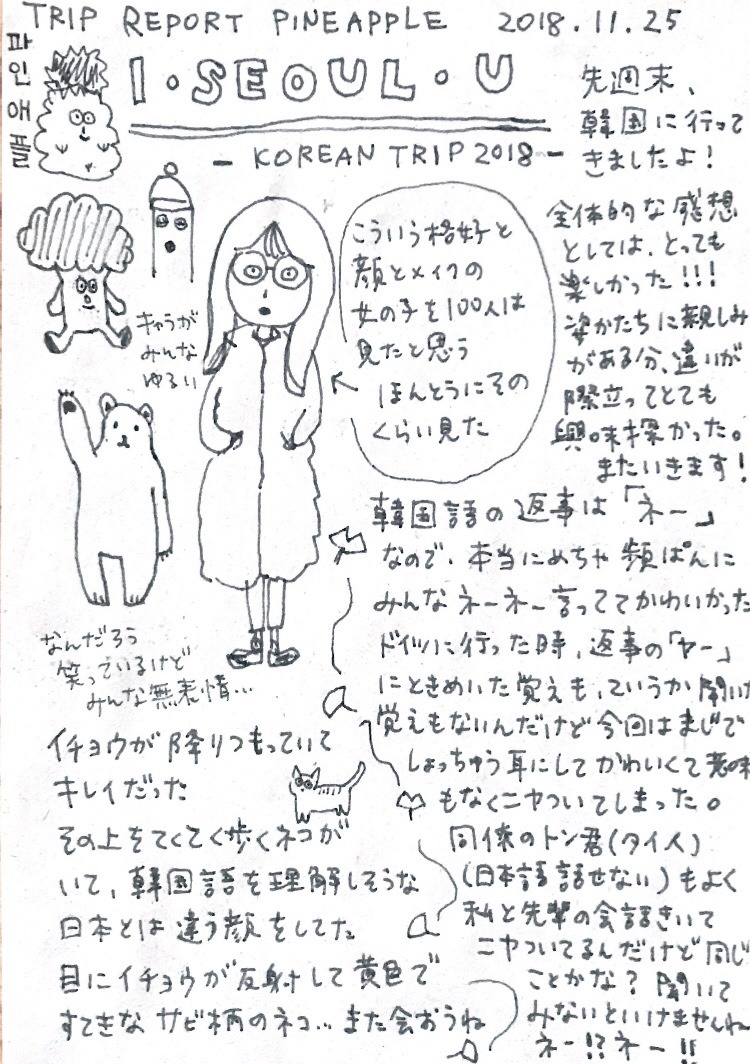 TRIP REPORT PINEAPPLE 2018.11.25
파인애플
I・SEOUL・U
- KOREAN TRIP 2018 -
先週末、
韓国に行って
きましたよ!
全体的な感想
としては、とっても
楽しかった!!!
姿かたちに親しみ
がある分、違いが
際立ってとても
興味深かった。
またいきます!
こういう格好と
顔とメイクの
女の子を100人は
見たと思う
ほんとうにその
くらい見た
キャラが
みんな
ゆるい
なんだろう
笑っているけど
みんな無表情…
韓国語の返事は「ネー」
なので、本当にめちゃ頻ぱんに
みんなネーネー言っててかわいかった
ドイツに行った時、返事の「ヤー」
にときめいた覚えも、ていうか聞いた
覚えもないんだけど今回はまじで
しょっちゅう耳にしてかわいくて意味
もなくニヤついてしまった。
同僚のトン君(タイ人)
(日本語話せない)もよく
私と先輩の会話きいて
ニヤついてるんだけど同じ
ことかな?聞いて
みないといけませんね
ネー!?ネー!!
イチョウが降りつもっていて
キレイだった
その上をてくてく歩くネコが
いて、韓国語を理解しそうな
日本とは違う顔をしてた
目にイチョウが反射して黄色で
すてきなサビ柄のネコ…また会おうね